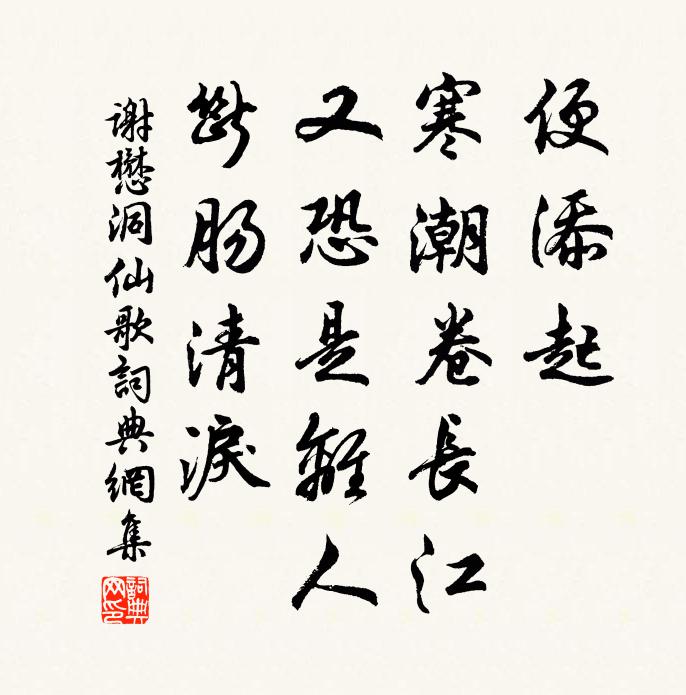 便添起
寒潮卷長江
又恐是離人
斷腸清淚
謝懋洞仙歌詞典網集
詞典
网印